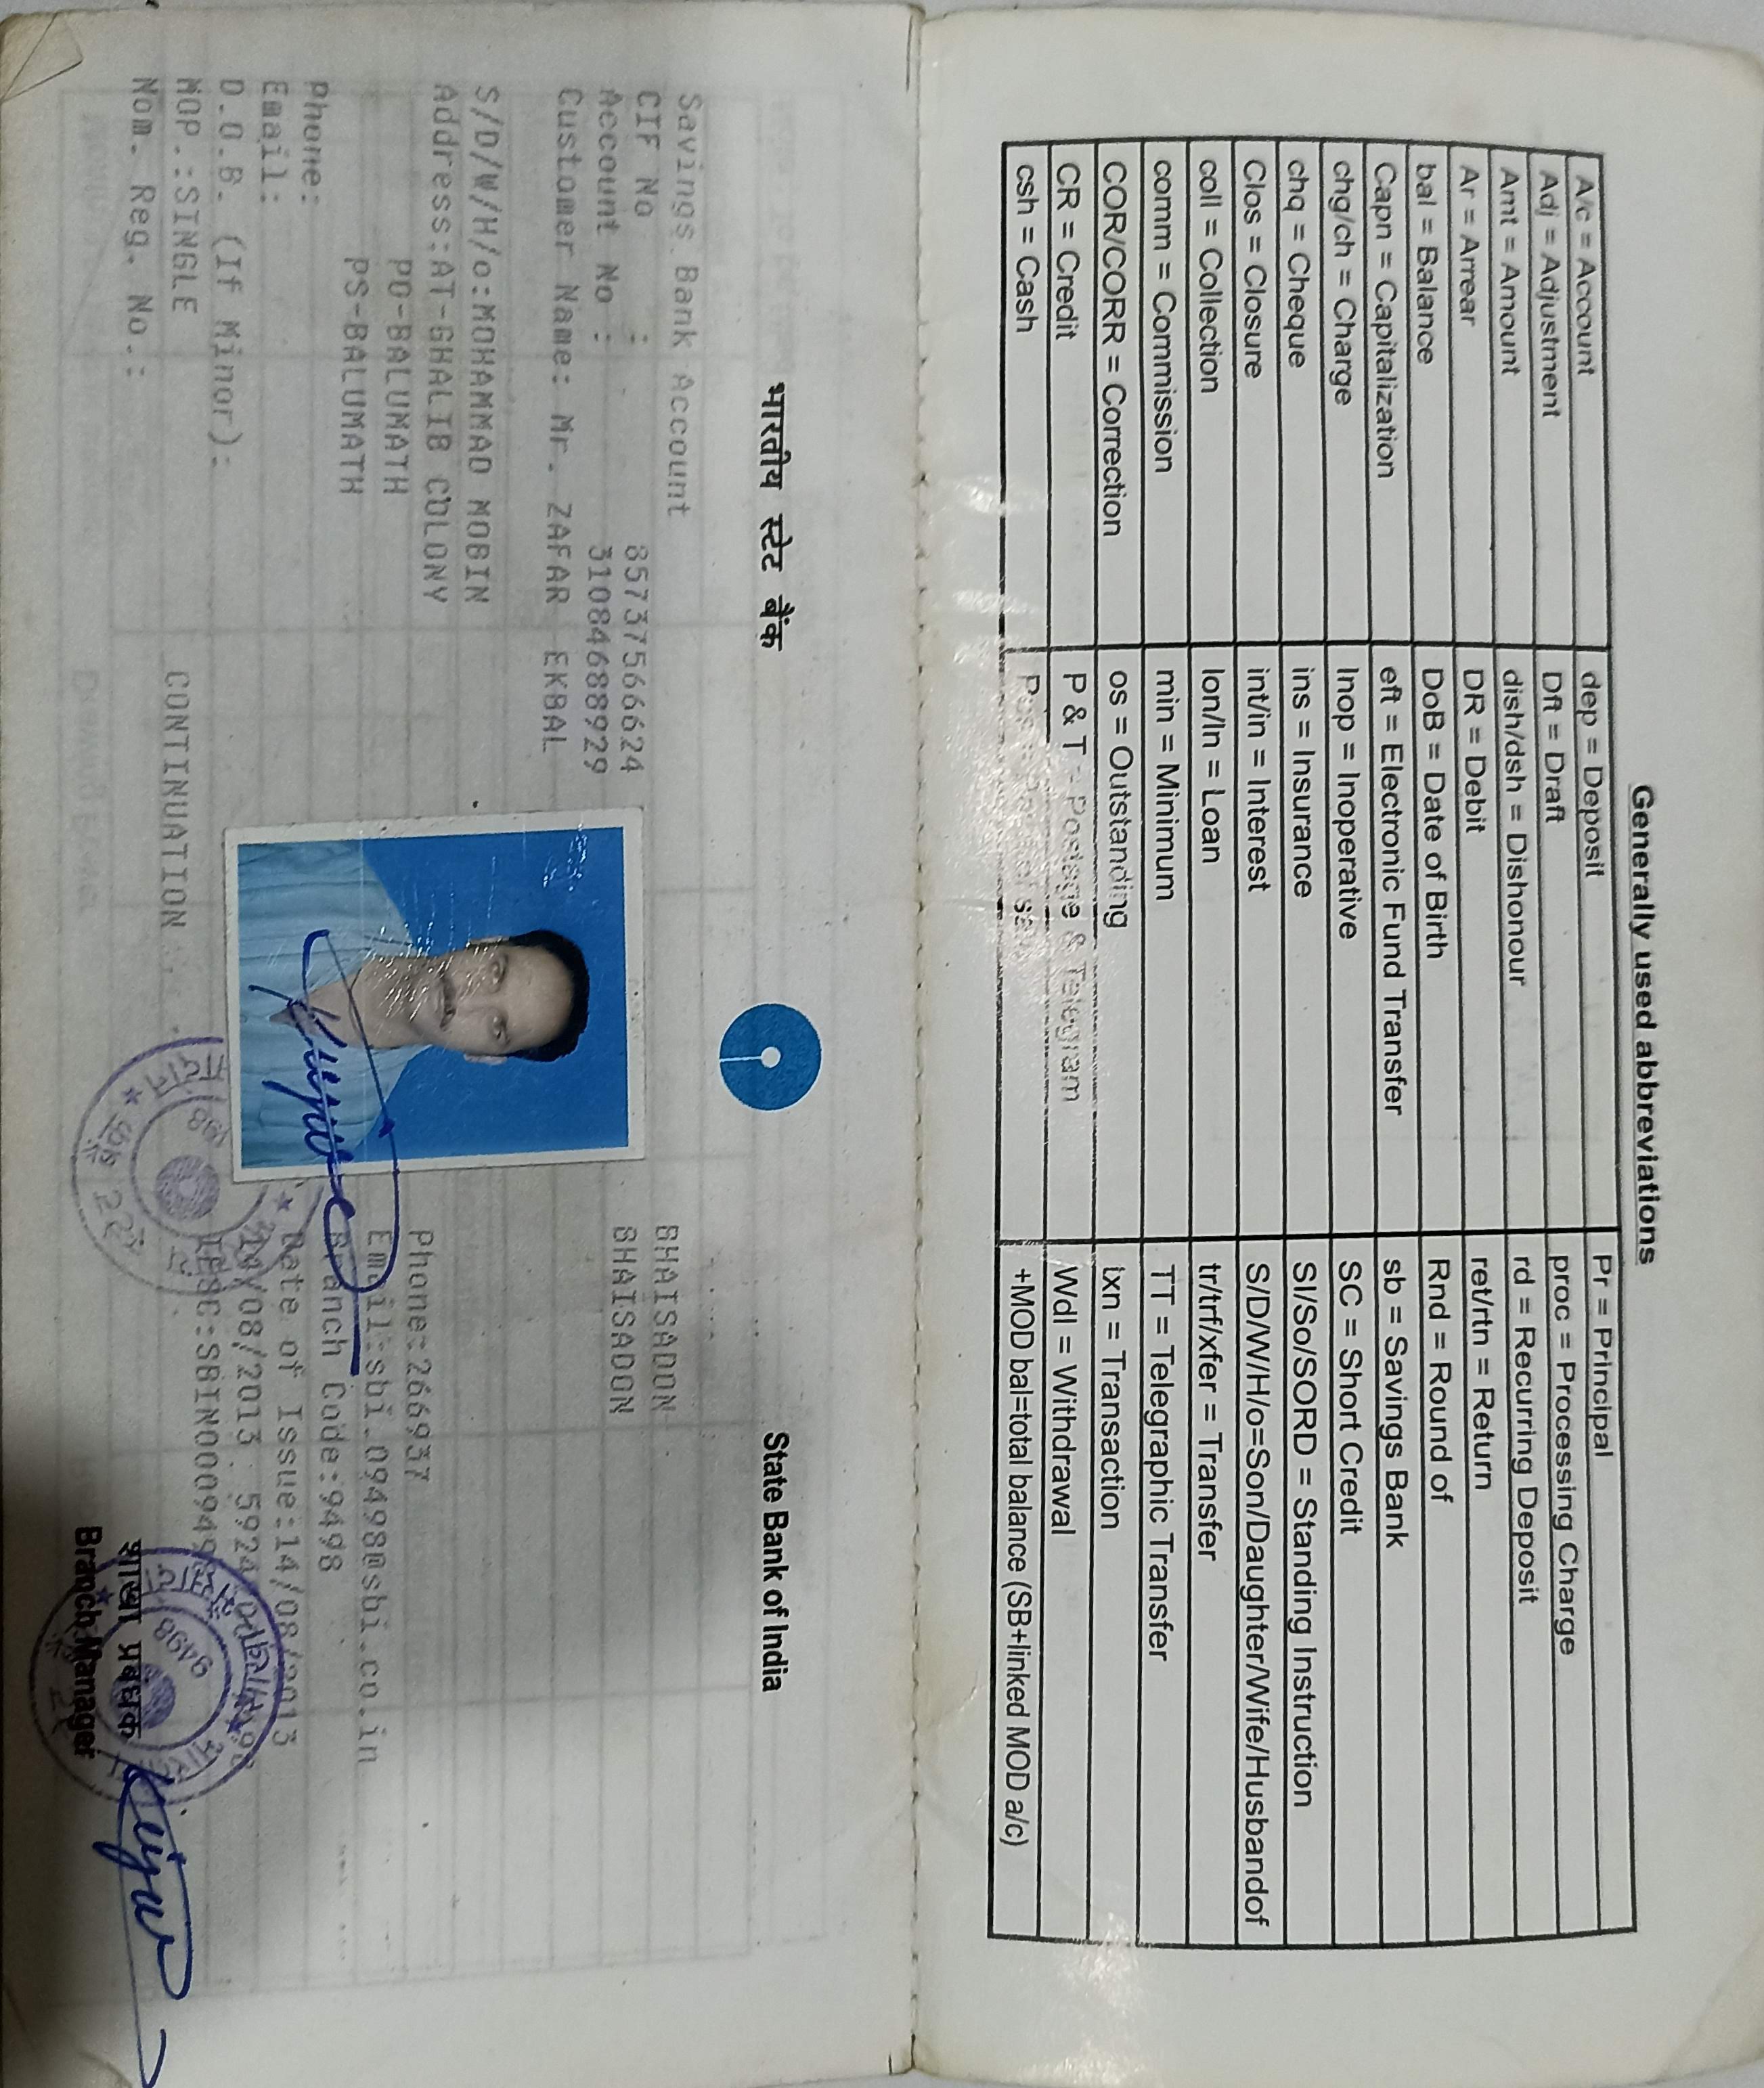 Generally used abbreviations
A/c = Account dep = Deposit Pr = Principal
Adj = Adjustment Dft = Draft proc = Processing Charge
Amt = Amount dish/dsh = Dishonour rd = Recurring Deposit
Ar = Arrear DR = Debit ret/rtn = Return
bal = Balance DoB = Date of Birth Rnd = Round of
Capn = Capitalization eft = Electronic Fund Transfer sb = Savings Bank
chg/ch = Charge Inop = Inoperative SC = Short Credit
chq = Cheque ins = Insurance SI/So/SORD = Standing Instruction
Clos = Closure int/in = Interest S/D/W/H/o=Son/Daughter/Wife/Husbandof
coll = Collection lon/ln = Loan tr/trf/xfer = Transfer
comm = Commission min = Minimum TT = Telegraphic Transfer
COR/CORR = Correction os = Outstanding txn = Transaction
CR = Credit P & T = Postage & Telegram Wdl = Withdrawal
csh = Cash +MOD bal=total balance (SB+linked MOD a/c)
भारतीय स्टेट बैंक State Bank of India
Savings Bank Account BHAISADON
CIF No : 85737566624 BHAISADON
Account No : 31084688929
Customer Name: Mr. ZAFAR EKBAL
S/D/W/H/o:MOHAMMAD MOBIN
Address:AT-GHALIB COLONY Phone:266937
PO-BALUMATH Email:sbi.09498@sbi.co.in
PS-BALUMATH Branch Code:9498
Phone: Date of Issue:14/08/2013
Email: 14/08/2013 5924
D.O.B. (If Minor): IFSC:SBIN0009498
MOP.:SINGLE CONTINUATION
Nom. Reg. No.:
9498
शाखा प्रबंधक
Branch Manager